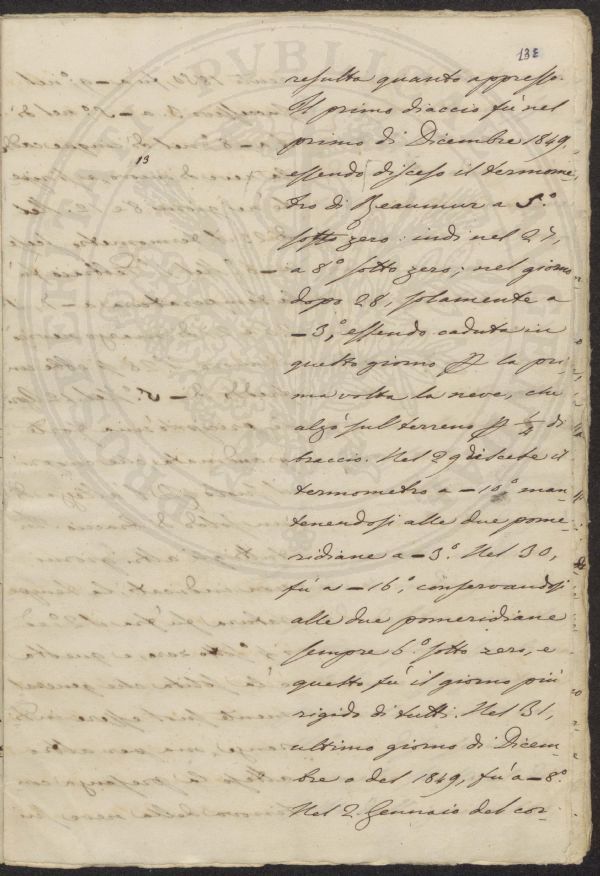 132
resulta quanto appresso.
Il primo diaccio fú nel
primo di Dicembre 1849,
13
essendo disceso il termome-
tro di Reaumur a 5.°
sotto zero: indi nel 27,
a 8° sotto zero; nel giorno
dopo 28, solamente a
-3°, essendo caduta in
questo giorno p la pri-
ma volta la neve, che
alzó sul terreno p 1/4 di
braccio. Nel 29 discese il
termometro a -10° man-
tenendosi alle due pome-
ridiane a -3°. Nel 30,
fú a -16°, conservandosi
alle due pomeridiane
sempre 6° sotto zero, e
questo fú il giorno piú
rigido di tutti. Nel 31,
ultimo giorno di Dicem-
bre o del 1849, fú a -8°.
Nel 2 Gennaio del cor-